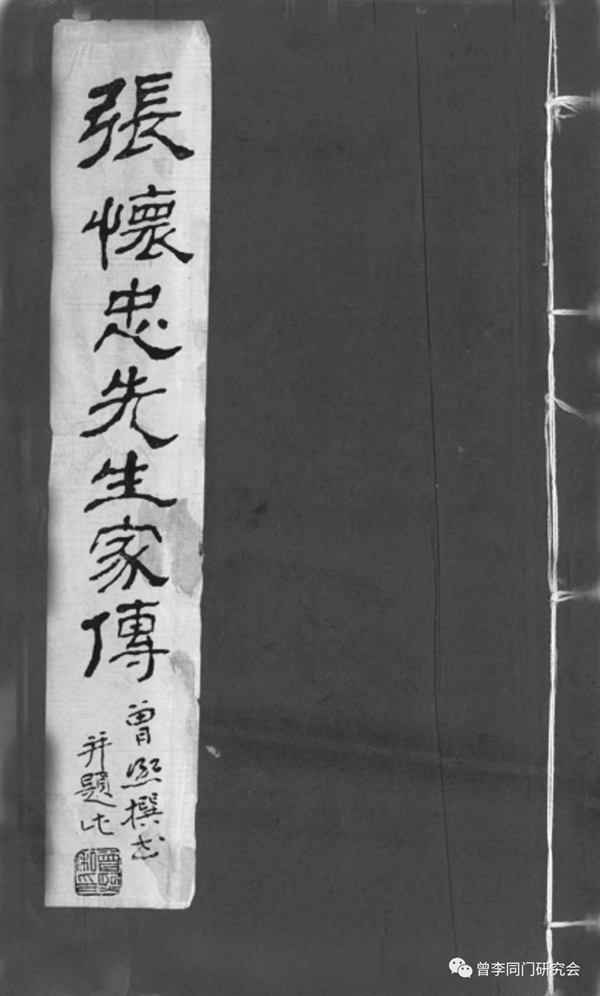 張懷忠先生家傳
曾熙撰書
并題此
曾李同门研究会